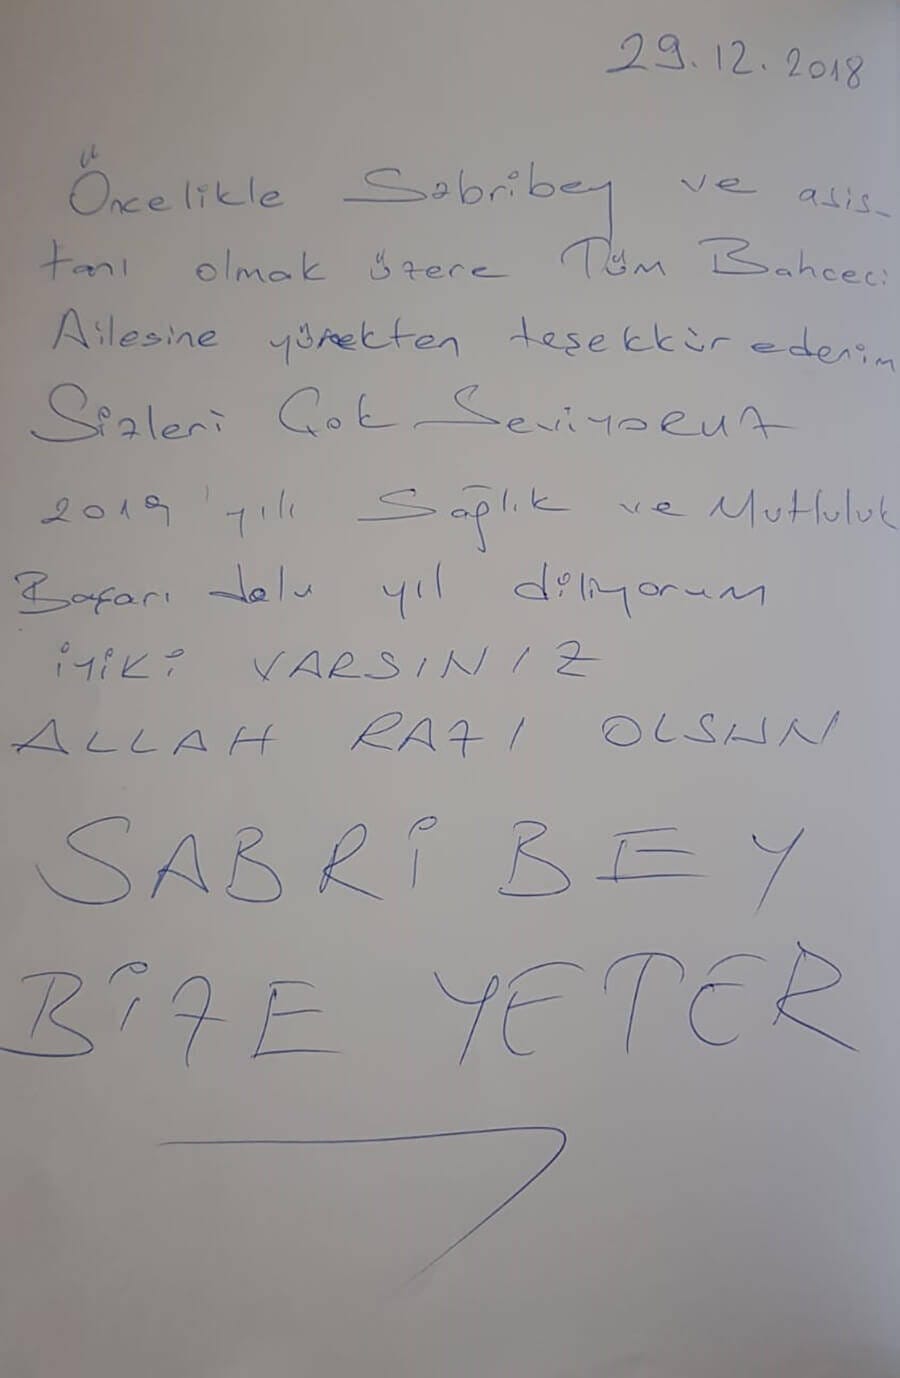 29.12.2018
Öncelikle Sabribey ve asis-
tanı olmak üzere Tüm Bahceci
Ailesine yürekten teşekkür ederim
Sizleri Çok Seviyoruz
2019' yılı Sağlık ve Mutluluk
Başarı dolu yıl diliyorum
iyiki VARSINIZ
ALLAH RAZI OLSUN
SABRİ BEY
BİZE YETER